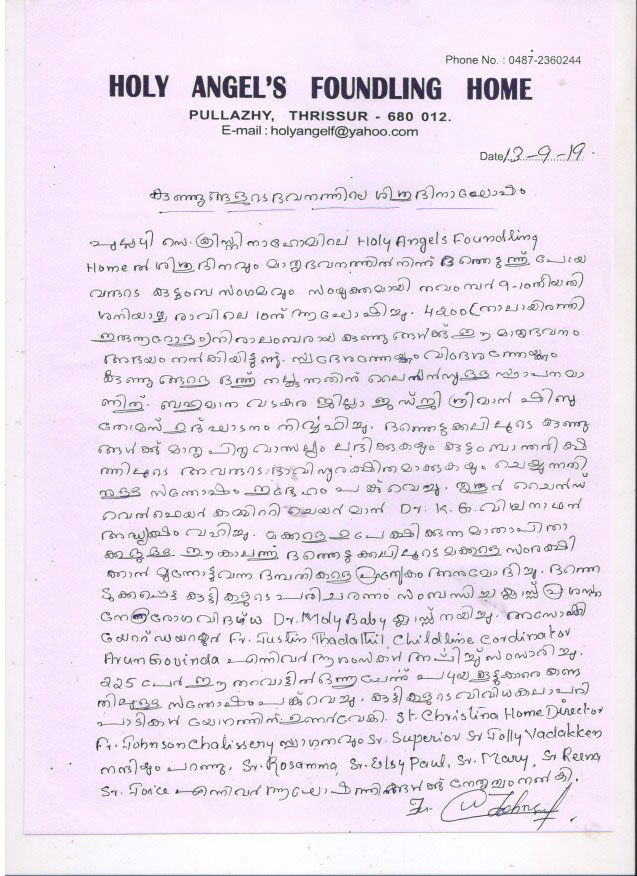 Phone No. : 0487-2360244
HOLY ANGEL'S FOUNDLING HOME
PULLAZHY, THRISSUR - 680 012.
E-mail : holyangelf@yahoo.com
Date 13-9-19
കുഞ്ഞുങ്ങളുടെ ഭവനത്തിലെ ശിശുദിനാഘോഷം
പുല്ലഴി സെ. ക്രിസ്റ്റീനാഹോമിലെ Holy Angels Foundling
Home ൽ ശിശുദിനവും മാതൃഭവനത്തിൽ നിന്ന് ദത്തെടുത്ത് പോയ
വരുടെ കുടുംബ സംഗമവും സംയുക്തമായി നവംബർ 9-ാംതിയതി
ശനിയാഴ്ച രാവിലെ 10ന് ആഘോഷിച്ചു. 4200 (നാലായിരത്തി
ഇരുന്നൂറോളം) നിരാലംബരായ കുഞ്ഞുങ്ങൾക്ക് ഈ മാതൃഭവനം
അഭയം നൽകിയിട്ടുണ്ട്. സ്വദേശത്തേക്കും വിദേശത്തേക്കും
കുഞ്ഞുങ്ങളെ ദത്ത് നല്കുന്നതിന് ലൈസൻസുള്ള സ്ഥാപനമാ
ണിത്. ബഹുമാന വടകര ജില്ലാ ജഡ്ജി ശ്രീമാൻ ഷിബു
തോമസ് ഉദ്ഘാടനം നിർവ്വഹിച്ചു. ദത്തെടുക്കലിലൂടെ കുഞ്ഞു
ങ്ങൾക്ക് മാതൃപിതൃവാത്സല്യം ലഭിക്കുകയും കുടുംബാന്തരീക്ഷ
ത്തിലൂടെ അവരുടെ ഭാവി സുരക്ഷിതമാക്കുകയും ചെയ്യുന്നതി
നുള്ള സന്തോഷം ഇദ്ദേഹം പങ്കുവെച്ചു. തൃശൂർ ചൈൽഡ്
വെൽഫെയർ കമ്മിറ്റി ചെയർമാൻ Dr. K. ജി. വിശ്വനാഥൻ
അദ്ധ്യക്ഷം വഹിച്ചു. മക്കളെ ഉപേക്ഷിക്കുന്ന മാതാപിതാ
ക്കളുള്ള ഈ കാലത്ത് ദത്തെടുക്കലിലൂടെ മക്കളെ സംരക്ഷി
ക്കാൻ മുന്നോട്ടുവന്ന ദമ്പതികളെ പ്രത്യേകം അനുമോദിച്ചു. ദത്തെ
ടുക്കപ്പെട്ട കുട്ടികളുടെ പരിചരണം സംബന്ധിച്ച ക്ലാസ്സ് പ്രശസ്ത
നേത്രരോഗവിദഗ്ധ Dr. Moly Baby ക്ലാസ്സ് നയിച്ചു. അസോസി
യേറ്റ് ഡയറക്ടർ Fr. Justin Thadathil, Childline Cordinator
Arun Govinda എന്നിവർ ആശംസകൾ അർപ്പിച്ച് സംസാരിച്ചു.
225 പേർ ഈ തറവാട്ടിൽ ഒത്തുചേർന്ന് പഴയ കൂട്ടുകാരെ കണ്ട
തിലുള്ള സന്തോഷം പങ്കുവെച്ചു. കുട്ടികളുടെ വിവിധകലാപരി
പാടികൾ യോഗത്തിന് ഉണർവേകി. St. Christina Home Director
Fr. Johnson Chalissery സ്വാഗതവും Sr. Superior Sr Jolly Vadakken
നന്ദിയും പറഞ്ഞു. Sr. Rosamma, Sr. Elsy Paul, Sr. Mary, Sr Reena
Sr. Joice എന്നിവർ ആഘോഷത്തിന് നേതൃത്വം നൽകി.
Fr. Johnson